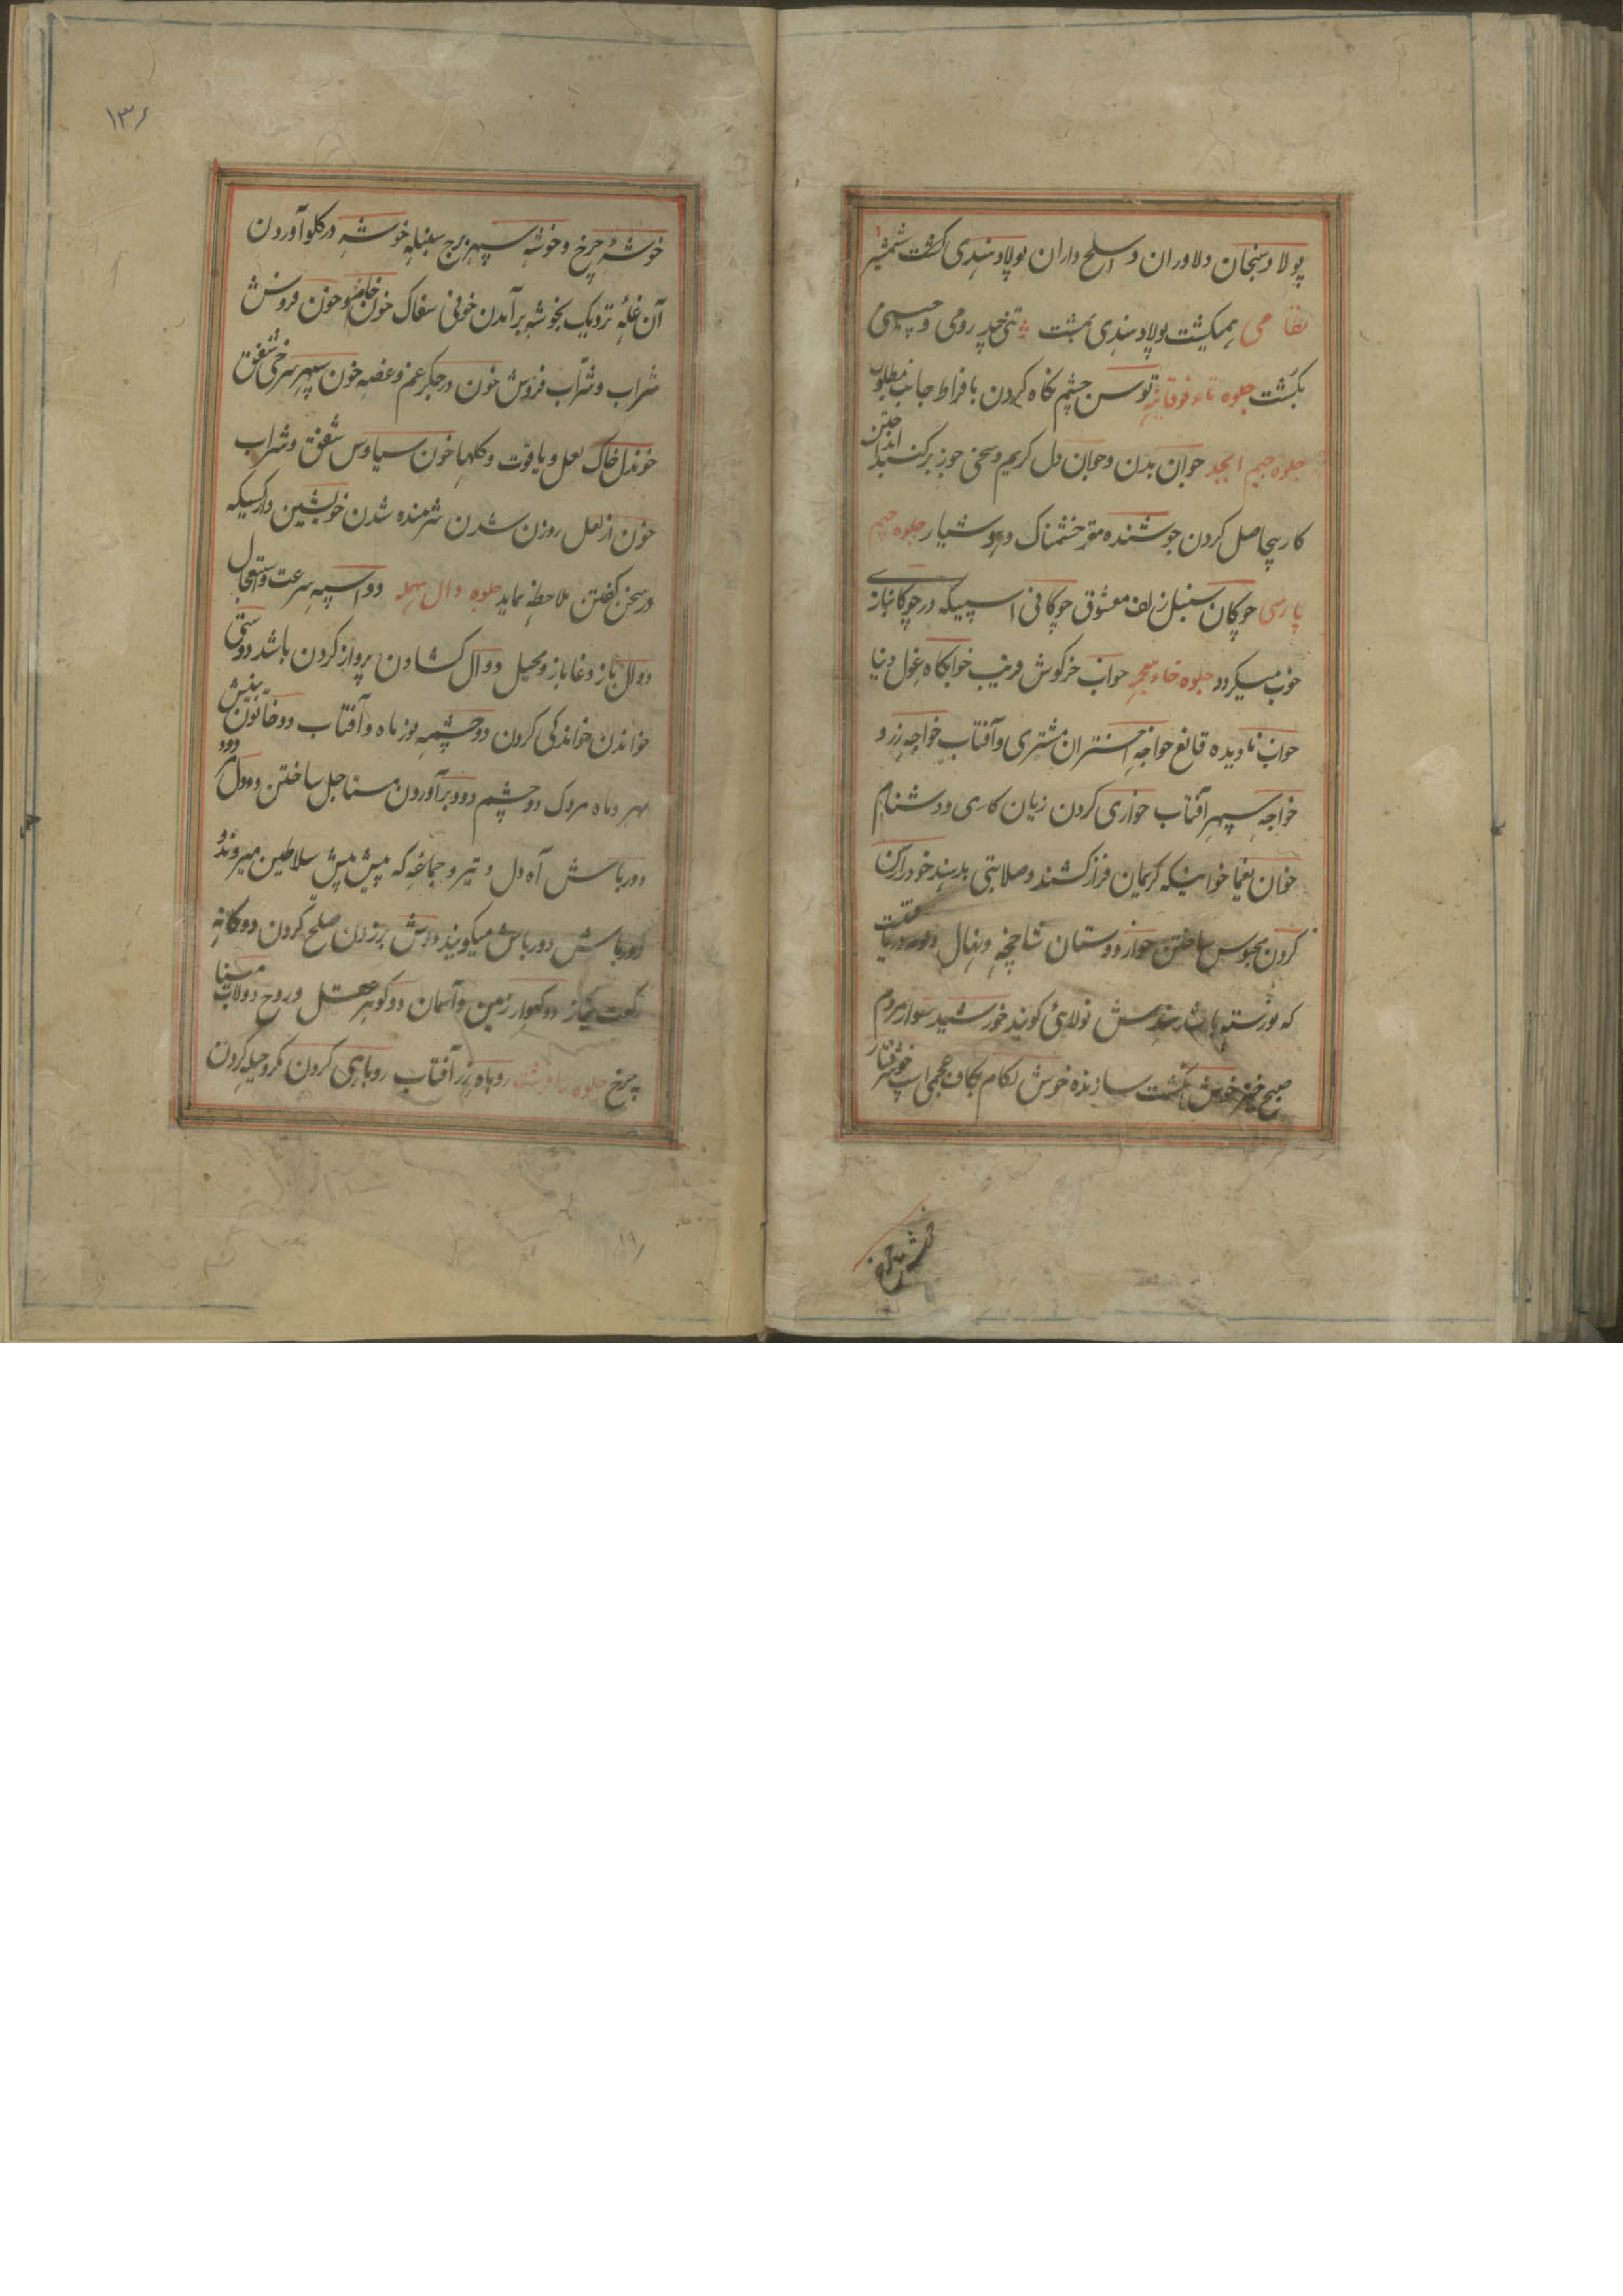 پولاد سنجان دلاوران و اسلح داران پولاد هندی کشت شمشیر
نظامی همیکشت پولاد هندی بمشت تنی چند رومی و چینی
بکشت جلوه تاء فوقانیه توسن چشم نگاه کردن بافراط جانب مطلوب
جلوه جیم ابجد جوان بدن و جوان دل کریم و سخی جوز بر کنبد انداختن
کار بیحاصل کردن جوشنده مغز خشمناک و هوشیار جلوه جیم
پارسی چوکان سنبل زلف معشوق چوکانی اسپیکه در چوکانبازی
خوب میکردد جلوه خاء معجمه خواب خرکوش فریب خوابکاه غول دنیا
خواب نادیده قانع خواجه اختران مشتری و آفتاب خواجه زرد
خواجه سپهر آفتاب خواری کردن زیان کاری و دشنام
خوان یغما خوانیکه کریمان فراز کشند و صلابتی بدهند خود را کن
کردن محبوس ساختن خوازه دوستان شاخچه و نهال
که نورسته باشد خورشید سوار مردم
صبح خیز خوش انکشت سازنده خوش لکام بکاف عجمی اسپ خوشرفتار
خوشه چرخ و خوشه سپهر برج سنبله خوشه در کلو آوردن
آن غله نزدیک بخوشه برآمدن خونی سفاک خون خام و خون فروش
شراب و شراب فروش خون در جکر غم و غصه خون سپهر سرخی شفق
خون دل خاک لعل و یاقوت و کلها خون سیاوس شفق و شراب
خون از لعل روزن شدن شرمنده شدن خویشتن دار کسیکه
در سخن کفتن ملاحظه نماید جلوه دال مهمله دو اسپه سرعت و استعجال
دوال باز دغاباز و محیل دوال کشادن پرواز کردن باشد دوستی
خواندن خواندکی کردن دو چشمه نور ماه و آفتاب دو خاتون بینش
مهر و ماه مردک دو چشم دود برآوردن مستاصل ساختن دودل
دورباش آه دل و تیر و جماعه که پیش پیش سلاطین میروند و
دورباش دورباش میکویند دوش برزدن صلح کردن دوکانه
دو رکعت نماز دو کهوار زمین و آسمان دو کوهر عقل و روح دولاب مینا
چرخ جلوه راء قرشت روباه زرد آفتاب روباهی کردن مکر و حیله کردن
۱۳۶